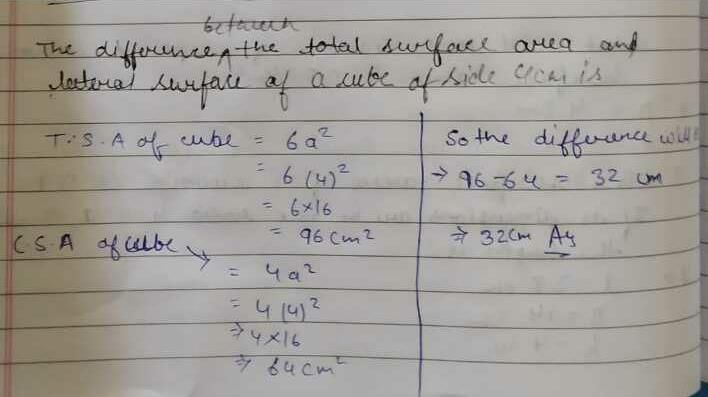 between
The difference ^ the total surface area and
lateral surface of a cube of side 4cm is
T.S.A of cube = 6a²
= 6(4)²
= 6×16
= 96cm²
C.S.A of cube
= 4a²
= 4(4)²
⇒ 4×16
⇒ 64cm²
So the difference will be
⇒ 96-64 = 32 cm
⇒ 32cm Ans